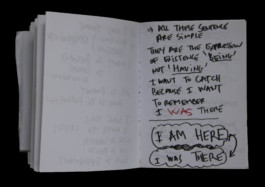 → ALL THESE SENTENCE
ARE SIMPLE
THEY ARE THE EXPRESSION
OF EXISTENCE 'BEING'
NOT 'HAVING'
I WANT TO CATCH
BECAUSE I WANT
TO REMEMBER
I WAS THERE
I AM HERE
I WAS THERE